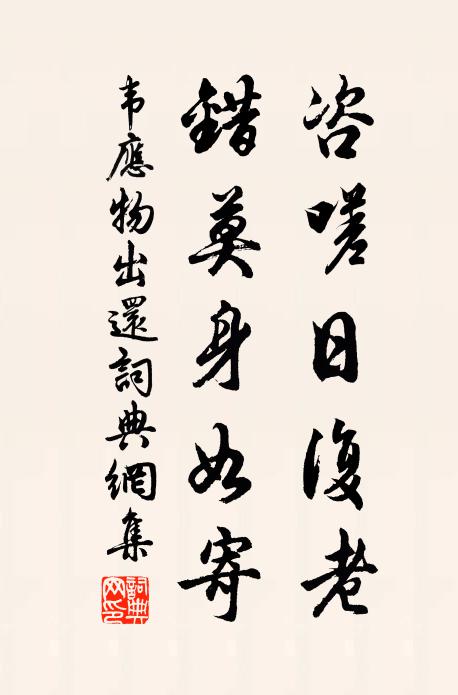 咨嗟日復老
錯莫身如寄
韦應物出還詞典網集
詞典網印